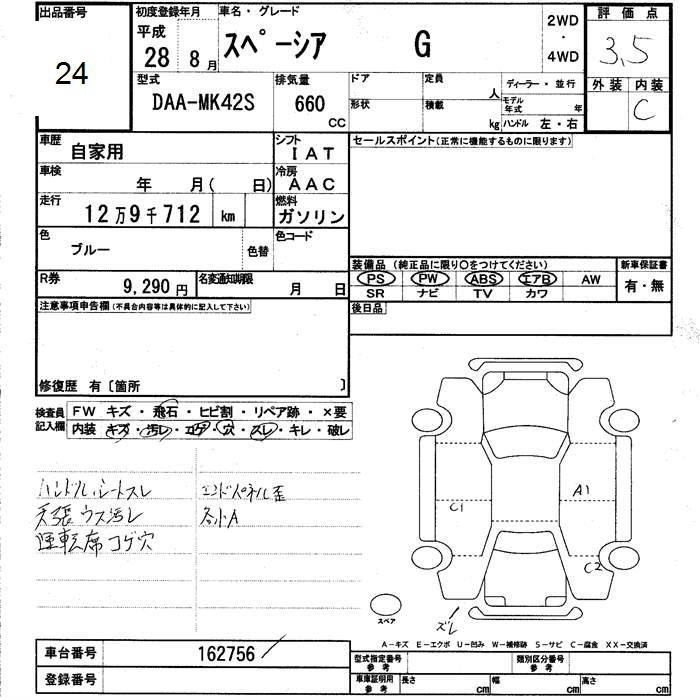 出品番号
24
初度登録年月
平成
28 8月
車名・グレード
スペーシア G
2WD
・
4WD
評価点
3.5
外装 内装
C
型式
DAA-MK42S
排気量
660
CC
ドア
定員
人
ディーラー・並行
形状
積載
kg
モデル
年式
年
ハンドル 左・右
車歴
自家用
シフト
IAT
セールスポイント(正常に機能するものに限ります)
車検
年 月( 日)
冷房
AAC
走行
12万9千712 km
燃料
ガソリン
色
ブルー
色替
色コード
装備品 (純正品に限り○をつけてください)
新車保証書
PS PW ABS エアB AW
有・無
SR ナビ TV カワ
R券
9,290円
名変通知期限
月 日
後日品
注意事項申告欄(不具合内容等は具体的に記入して下さい)
修復歴 有〔箇所 〕
検査員
記入欄
FW キズ・飛石・ヒビ割・リペア跡・×要
内装 キズ・汚レ・コゲ・穴・スレ・キレ・破レ
ハンドル、シートスレ
エンドパネル歪
天張ウス汚レ
各小A
運転席コゲ穴
C1
A1
C2
スペア
ズレ
A-キズ E-エクボ U-凹み W-補修跡 S-サビ C-腐食 XX-交換済
車台番号
162756
登録番号
型式指定番号
参考
類別区分番号
参考
車庫証明用
参考
長さ cm
幅 cm
高さ cm